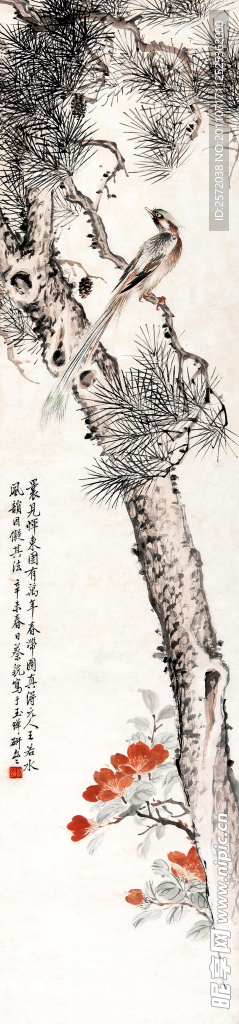 曩見惲東園有萬年春帶圖真得元人王若水
風韻因儗其法 辛未春日蔡銑寫于玉蟬研室
昵享网 www.nipic.cn
ID:2572038 NO:20110107